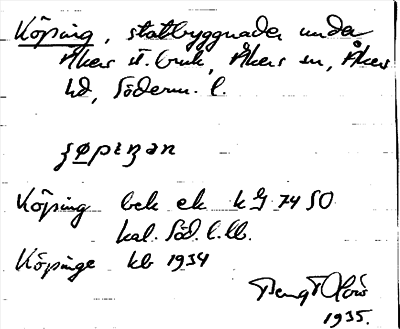 Köping, statbyggnader under
Åkers st. bruk, Åkers sn, Åkers
hd, Söderm. l.
Köping bek ek kG 74 SO
kal. Söd. l. lb.
Köpinge kb 1934
Bengt
1935.